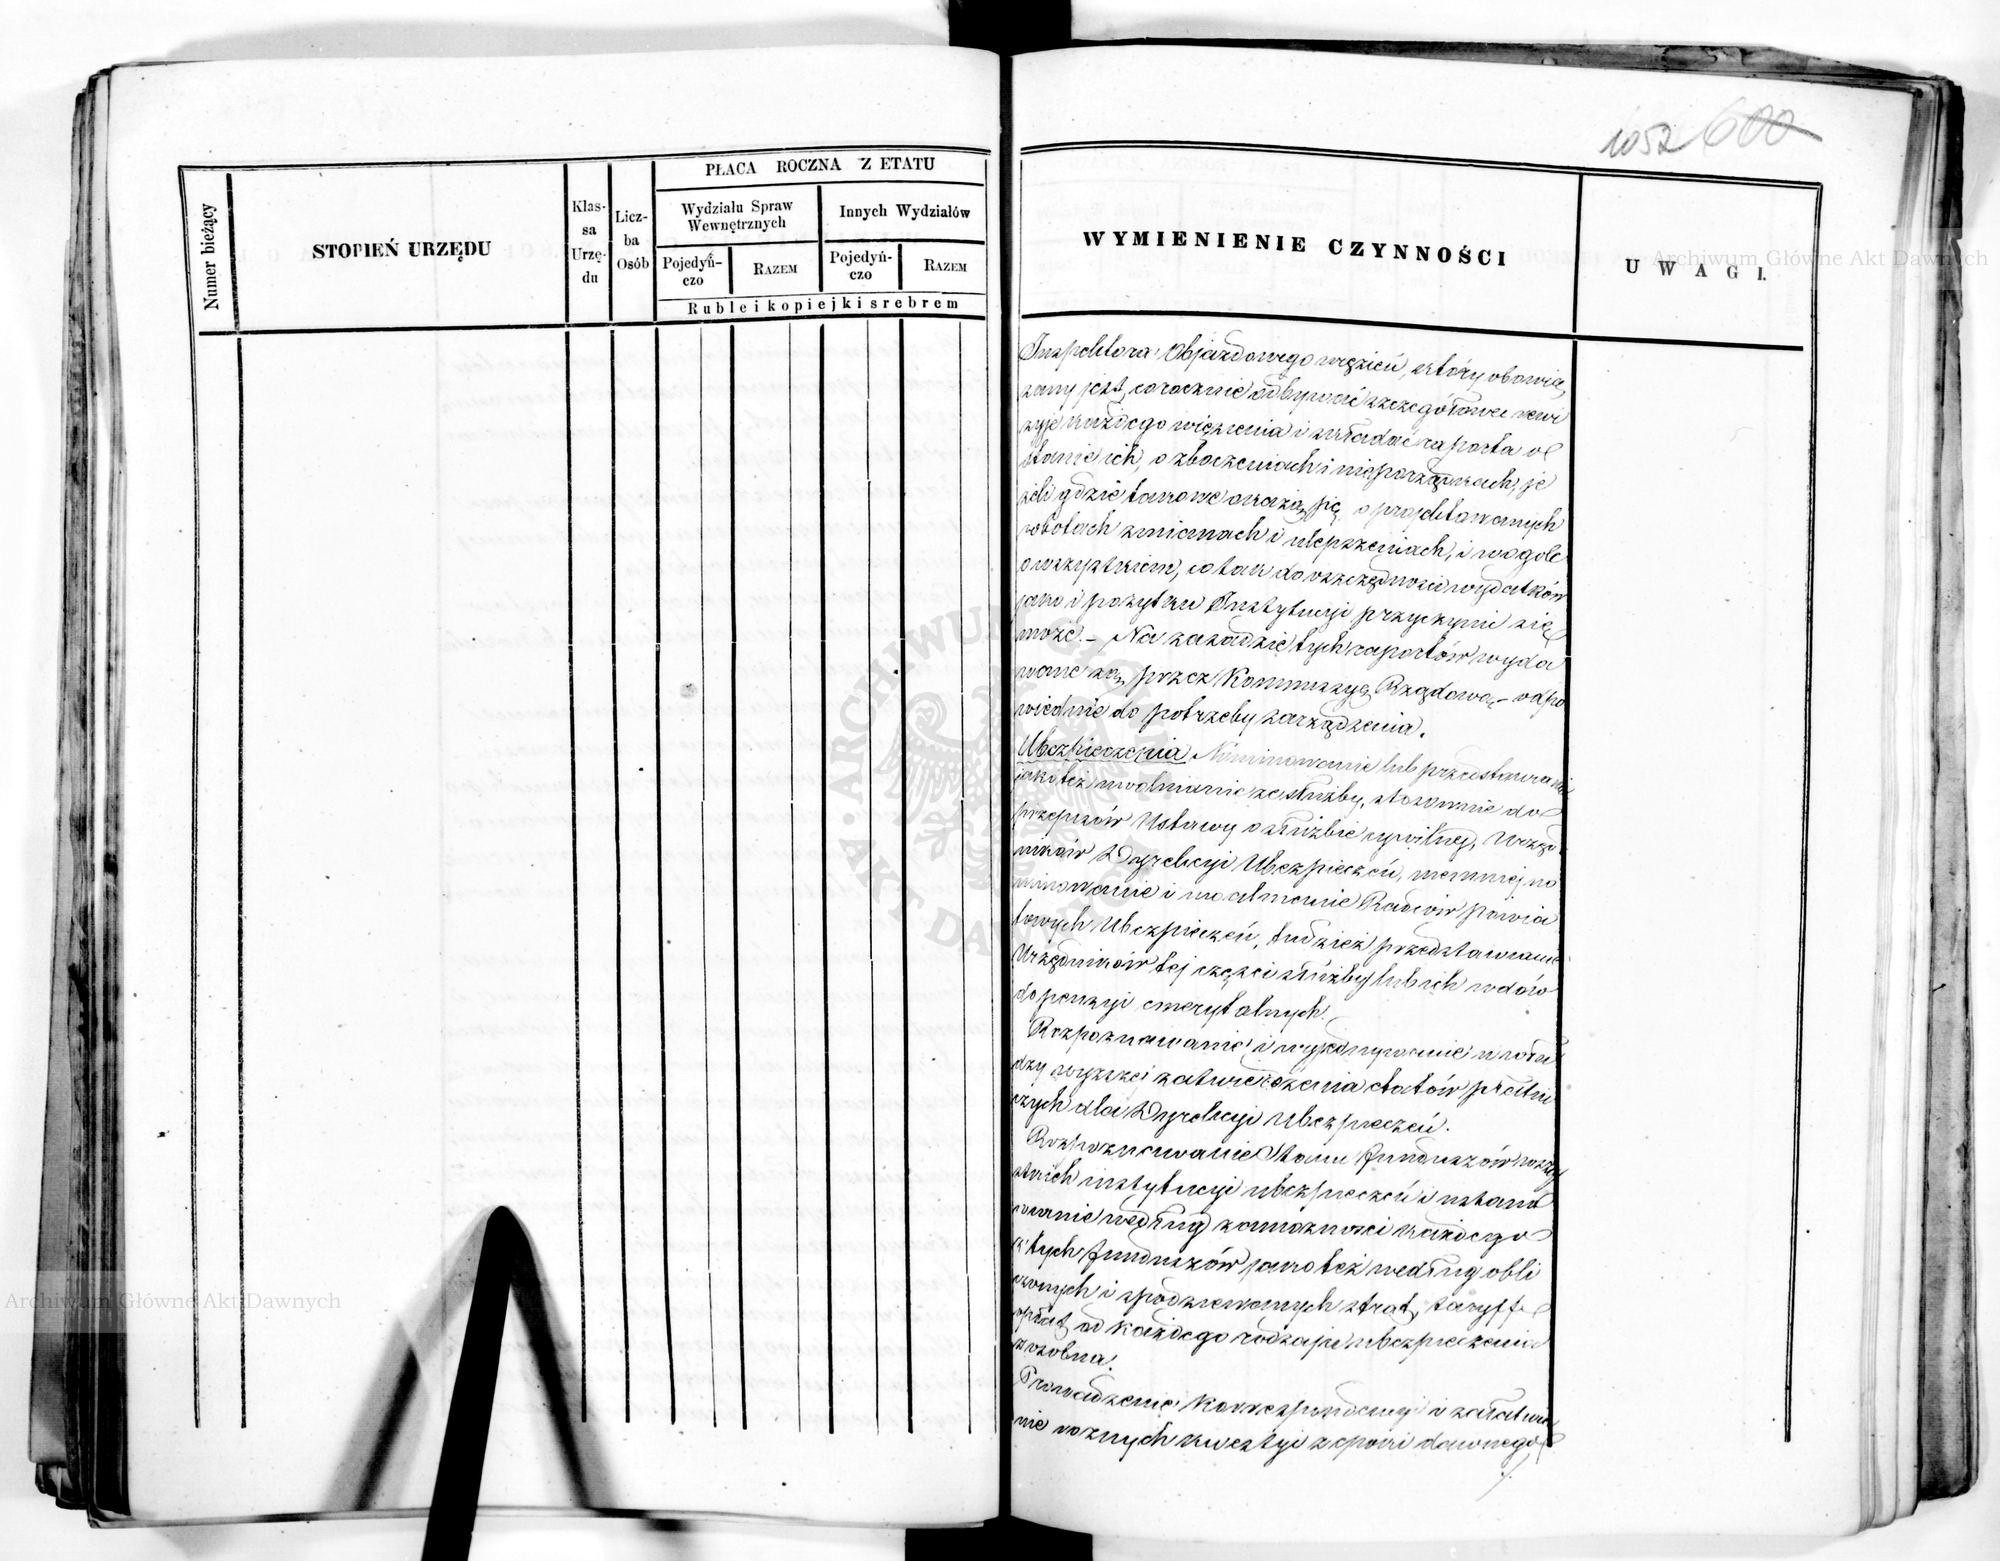 1052 600
Numer bieżący
STOPIEŃ URZĘDU
Klas-
sa
Urzę-
du
Licz-
ba
Osób
PŁACA ROCZNA Z ETATU
Wydziału Spraw
Wewnętrznych
Innych Wydziałów
Pojedyń-
czo
RAZEM
Pojedyń-
czo
RAZEM
Ruble i kopiejki srebrem
WYMIENIENIE CZYNNOŚCI
UWAGI.
Inspektora Objazdowego więzień, który obowią
zany jest, corocznie odbywać szczegółowe rewi
zyje każdego więzienia i składać raporta o
stanie ich, o zboczeniach i nieporządkach, je
żeli gdzie takowe okażą się, o projektowanych
robotach zmianach i ulepszeniach, i w ogóle
o wszystkiem, co tak do oszczędności wydatków
jako i pożytku Instytucyi przyczynić się
może. – Na zasadzie tych raportów wyda
wane są, przez Kommissyą Rządową – odpo
wiednie do potrzeby zarządzenia.
Ubezpieczenia. Nominowanie lub przedstawianie
jako też uwalnianie ze służby, stosownie do
przepisów Ustawy o służbie cywilnej, Urzęd
ników Dyrekcyi Ubezpieczeń, niemniej no
minowanie i uwalnianie Radców powia
towych Ubezpieczeń, tudzież przedstawianie
Urzędników tej części służby lub ich wdów
do pensyi emerytalnych.
Rozpoznawanie i wyjednywanie u wła
dzy wyższej zatwierdzenia etatów płatni
czych dla Dyrekcyi Ubezpieczeń.
Rozpoznawanie Stanu funduszów wszy
stkich instytucyi ubezpieczeń i ustano
wienie według zamożności każdego
z tych funduszów jako też według obli
czonych i spodziewanych strat, taryff
opłat od każdego rodzaju ubezpieczenia
z osobna.
Prowadzenie korrespondencyi i załatwia
nie różnych kwestyi z epoki dawnego
Archiwum Główne Akt Dawnych
Archiwum Główne Akt Dawnych
ARCHIWUM GŁÓWNE AKT DAWNYCH